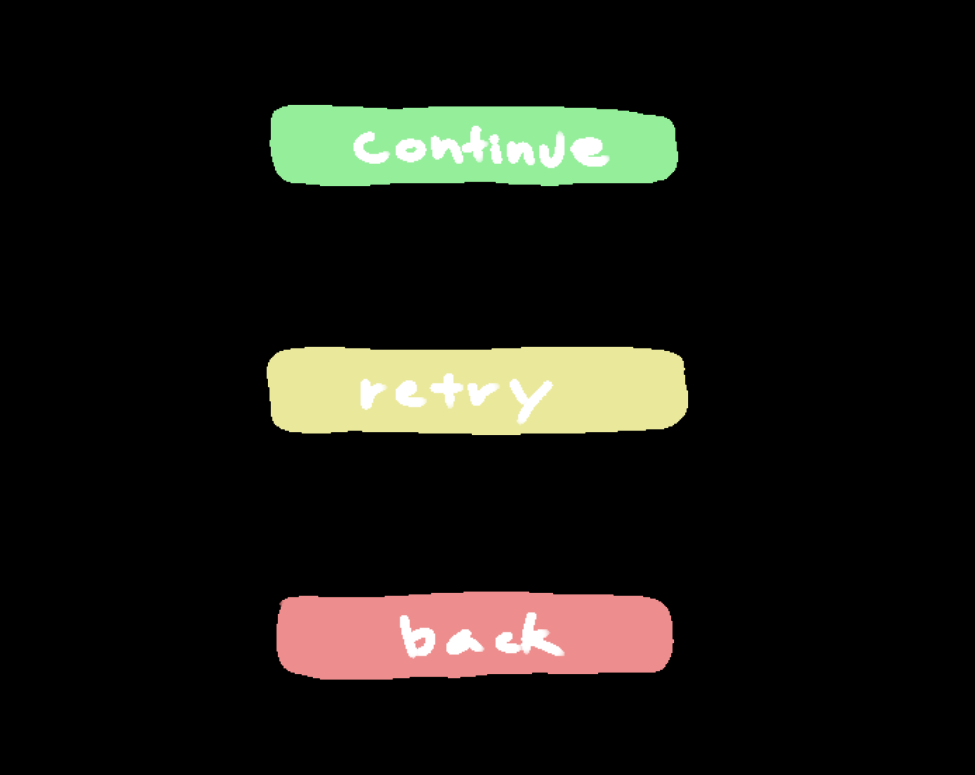 continue
retry
back